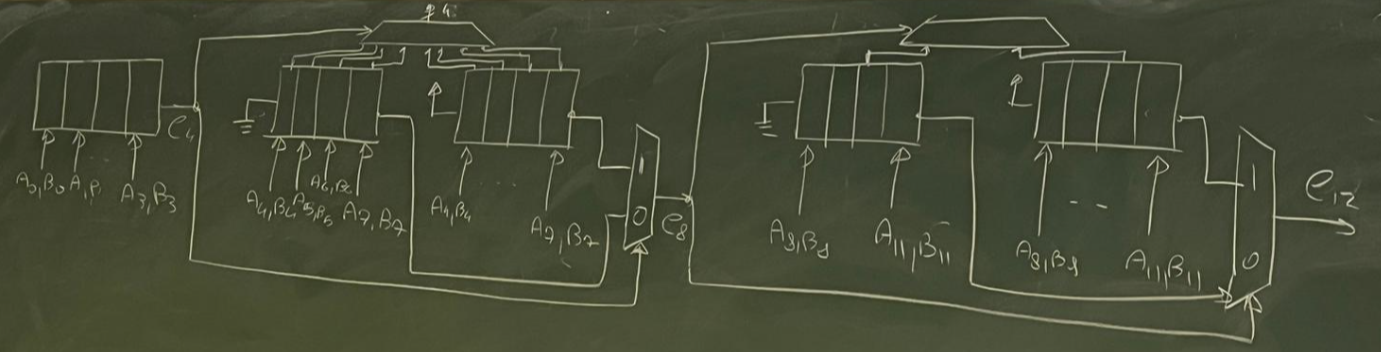 4
e4
A0,B0 A1,B1 ... A3,B3
A4,B4 A5,B5 A6,B6 A7,B7
A4,B4 ... A7,B7
1
0
e8
A8,B8 A11,B11
A8,B8 -- A11,B11
1
0
e12